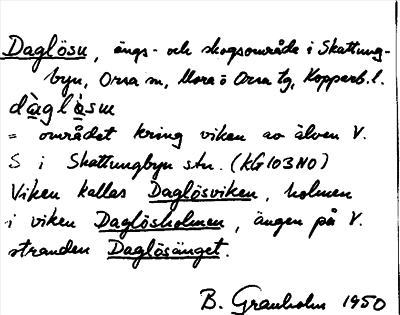 Daglösu, ängs- och skogsområde i Skattung-
byn, Orsa sn, Mora o Orsa tg, Kopparb. l.
dàglòsuu
= området kring viken av älven V.
S i Skattungbyn stn. (KG103NO)
Viken kallas Daglösviken, holmen
i viken Daglösholmen, ängen på V.
stranden Daglösänget.
B. Granholm 1950